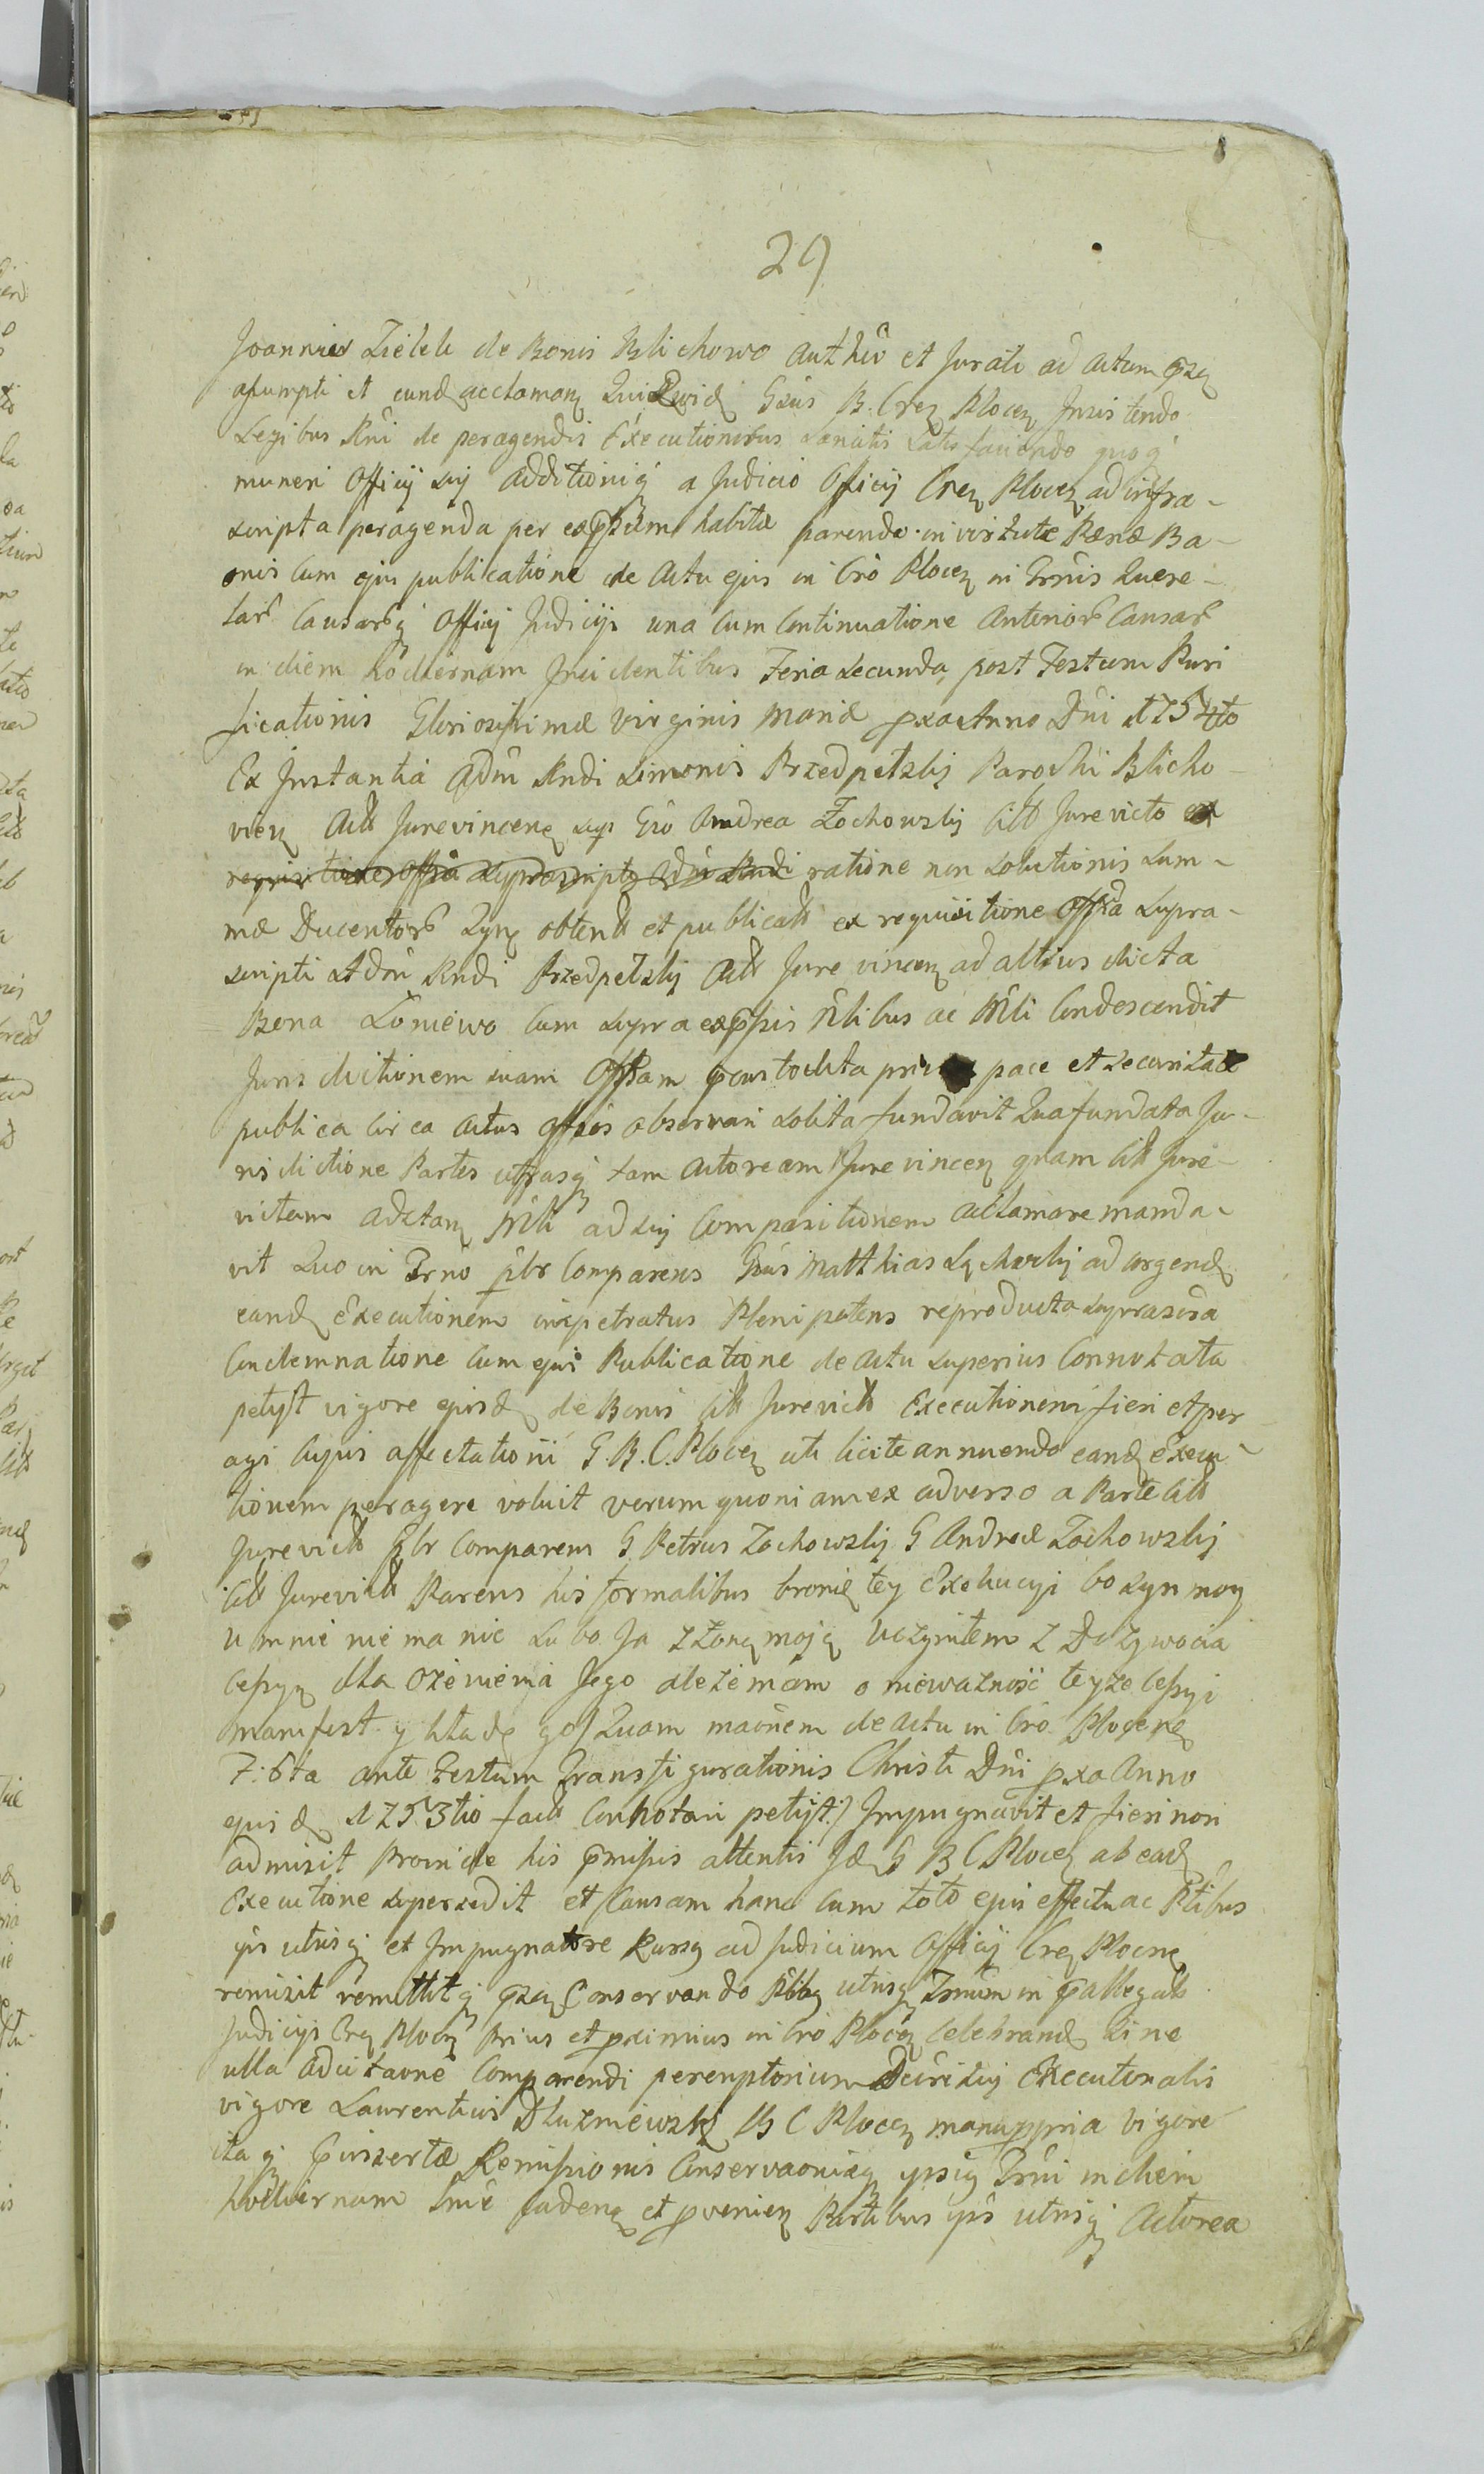 29
Joannis Zielele de Bonis Blichowo authen et Jurati ad Actum
assumpti et eund acclaman Quiquid Gsus B. Cren Plocen Insistendo
Legibus Rni de peragendis Executionibus Sancitis Satisfaciendo quoq
muneri Officij sui additioniq a Judicio Officij Cren Plocen ad infra-
scripta peragenda per expssum habitæ parendo in virtute Pænæ Ba-
onis cum ejus publicatione de Actu ejus in Cro Plocen in Trnis Quere-
lar Causarq Officij Judicijs una cum Continuatione Anterior Causar
in diem hodiernam Incidentibus Feria Secunda post Festum Puri
ficationis Gloriosissimæ Virginis Mariæ pxa Anno Dni 1754to
Ex Instantia Adm Rndi Simonis Przedpelskij Parochi Blicho-
vien Actt Jurevincen sup Gso Andrea Zochowskij Citt Jurevicto ex
ratione non Solutionis Sum-
mæ Ducentor obtentt et publicatt ex requisitione Offsa Supra-
scripti Adm Rndi Przedpelskij Actt Jure vincen ad altius dicta
Bona Loniewo cum supra expssis Nlibus ac Mli Condescendit
Jurisdictionem suam Offsam pcustodita pace et Securitate
publica circa Actus offsos observari Solita fundavit Qua fundata Ju-
risdictione Partes utrasq tam Actoream Jure vincen quam Citt Jure-
victam adstan Mli ad sui Comparitionem acclamare manda-
vit Quo in Trno plr Comparens Gsus Matthias ad urgend
eand Executionem impetratus Plenipotens reproducta suprascra
Condemnatione cum ejus Publicatione de Actu superius Connotata
petijt vigore ejusd de Bonis Citt Jurevictt Executionem fieri et per
agi Cujus affectationi G. B. C. Plocen uti licite annuendo eand Execu-
tionem peragere voluit verum quoniam ex adverso a Parte Citt
Jurevictt plr Comparens G Petrus Zochowskij G Andreæ Zochowskij
Citt Jurevictt Parens his formalibus bronię tey Exekucyi bo Syn moy
u mnie nie ma nic Lubo Ja z Żoną moją uczyniłem z Dozywocia
Cessyą dla Ozenienia Jego ale ze mam o niewazność teyze Cessyi
manifest y kładę go/ Quam maonem de Actu in Cro Plocen
F: 6ta ante Festum Transfigurationis Christi Dni pxa Anno
ejusd 1753tio factt Connotari petijt:/ Impugnavit et fieri non
admisit Proinde his pmissis attentis Id G B C Plocen ab ead
Executione supersedit et Causam hanc cum toto ejus effectu ac Ptibus
ijs utrisq et Impugnatore Rursq ad Judicium Officij Cren Plocen
remisit remittitq pzen Conservando utrisq Trnum in pallegatt
Judicijs Cren Plocen Prius et pximius in Cro Plocen Celebrand Sine
ulla adcitaone Comparendi peremptorium Decreti sui Executorialis
vigore Laurentius Dłuzniewski B C Plocen manuppria Vigore
itaq pinsertæ Remissionis Conservaonisq ipsiq Trni in diem
hodiernam Snte caden et pvenien Partibus ipsis utrisq Actorea